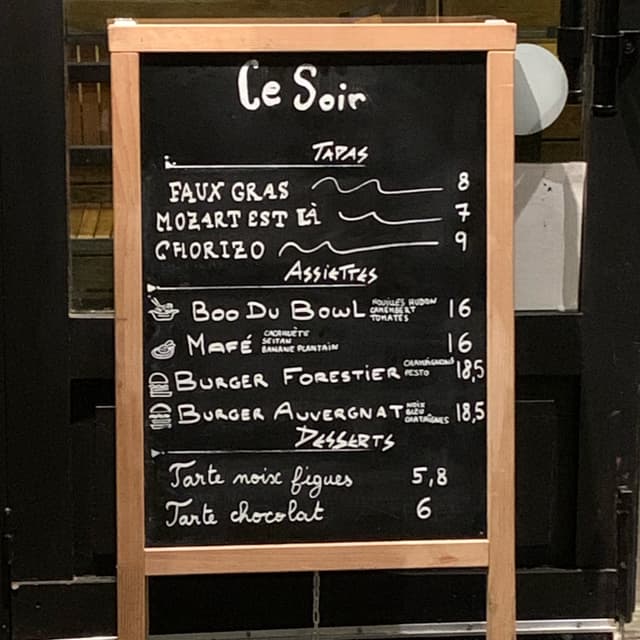 Ce Soir
TAPAS
FAUX GRAS 8
MOZART EST LÀ 7
CHORIZO 9
ASSIETTES
BOO DU BOWL NOUILLES HUDON CAMEMBERT TOMATES 16
MAFÉ CACAHUÈTE SEITAN BANANE PLANTAIN 16
BURGER FORESTIER CHAMPIGNONS PESTO 18,5
BURGER AUVERGNAT NOIX BLEU CHATAIGNES 18,5
DESSERTS
Tarte noix figues 5,8
Tarte chocolat 6